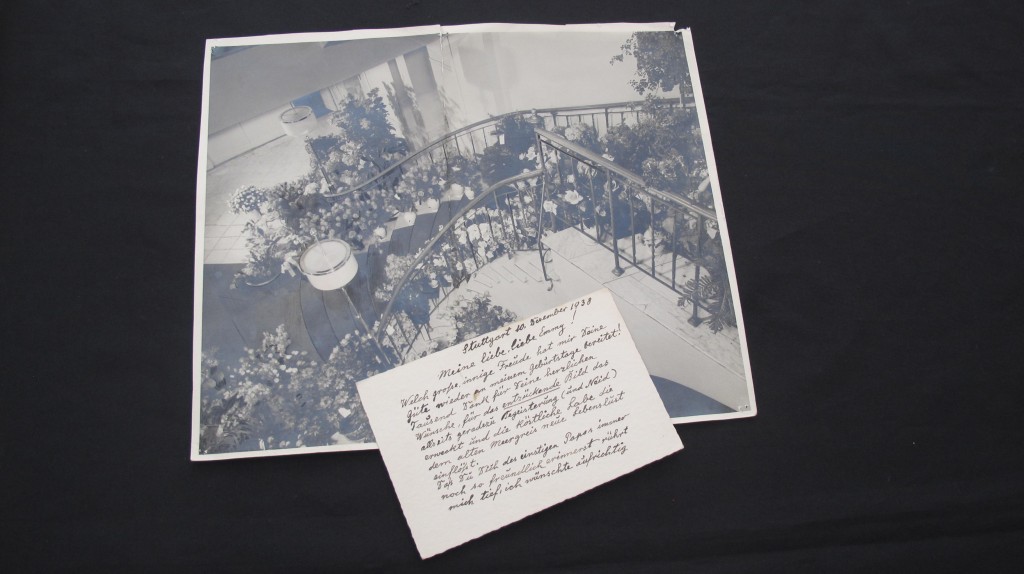 Stuttgart 10. Dezember 1938
Meine liebe, liebe Emmy!
Welch große, innige Freude hat mir Deine
Güte wieder an meinem Geburtstage bereitet!
Tausend Dank für Deine herzlichen
Wünsche, für das entzückende Bild das
allseits geradezu Begeisterung (und Neid)
erweckt und die köstliche Labe die
dem alten Meergreis neue Lebenslust
einflößt.
Daß Du Dich des einstigen Papas immer
noch so freundlich erinnerst rührt
mich tief, ich wünschte aufrichtig